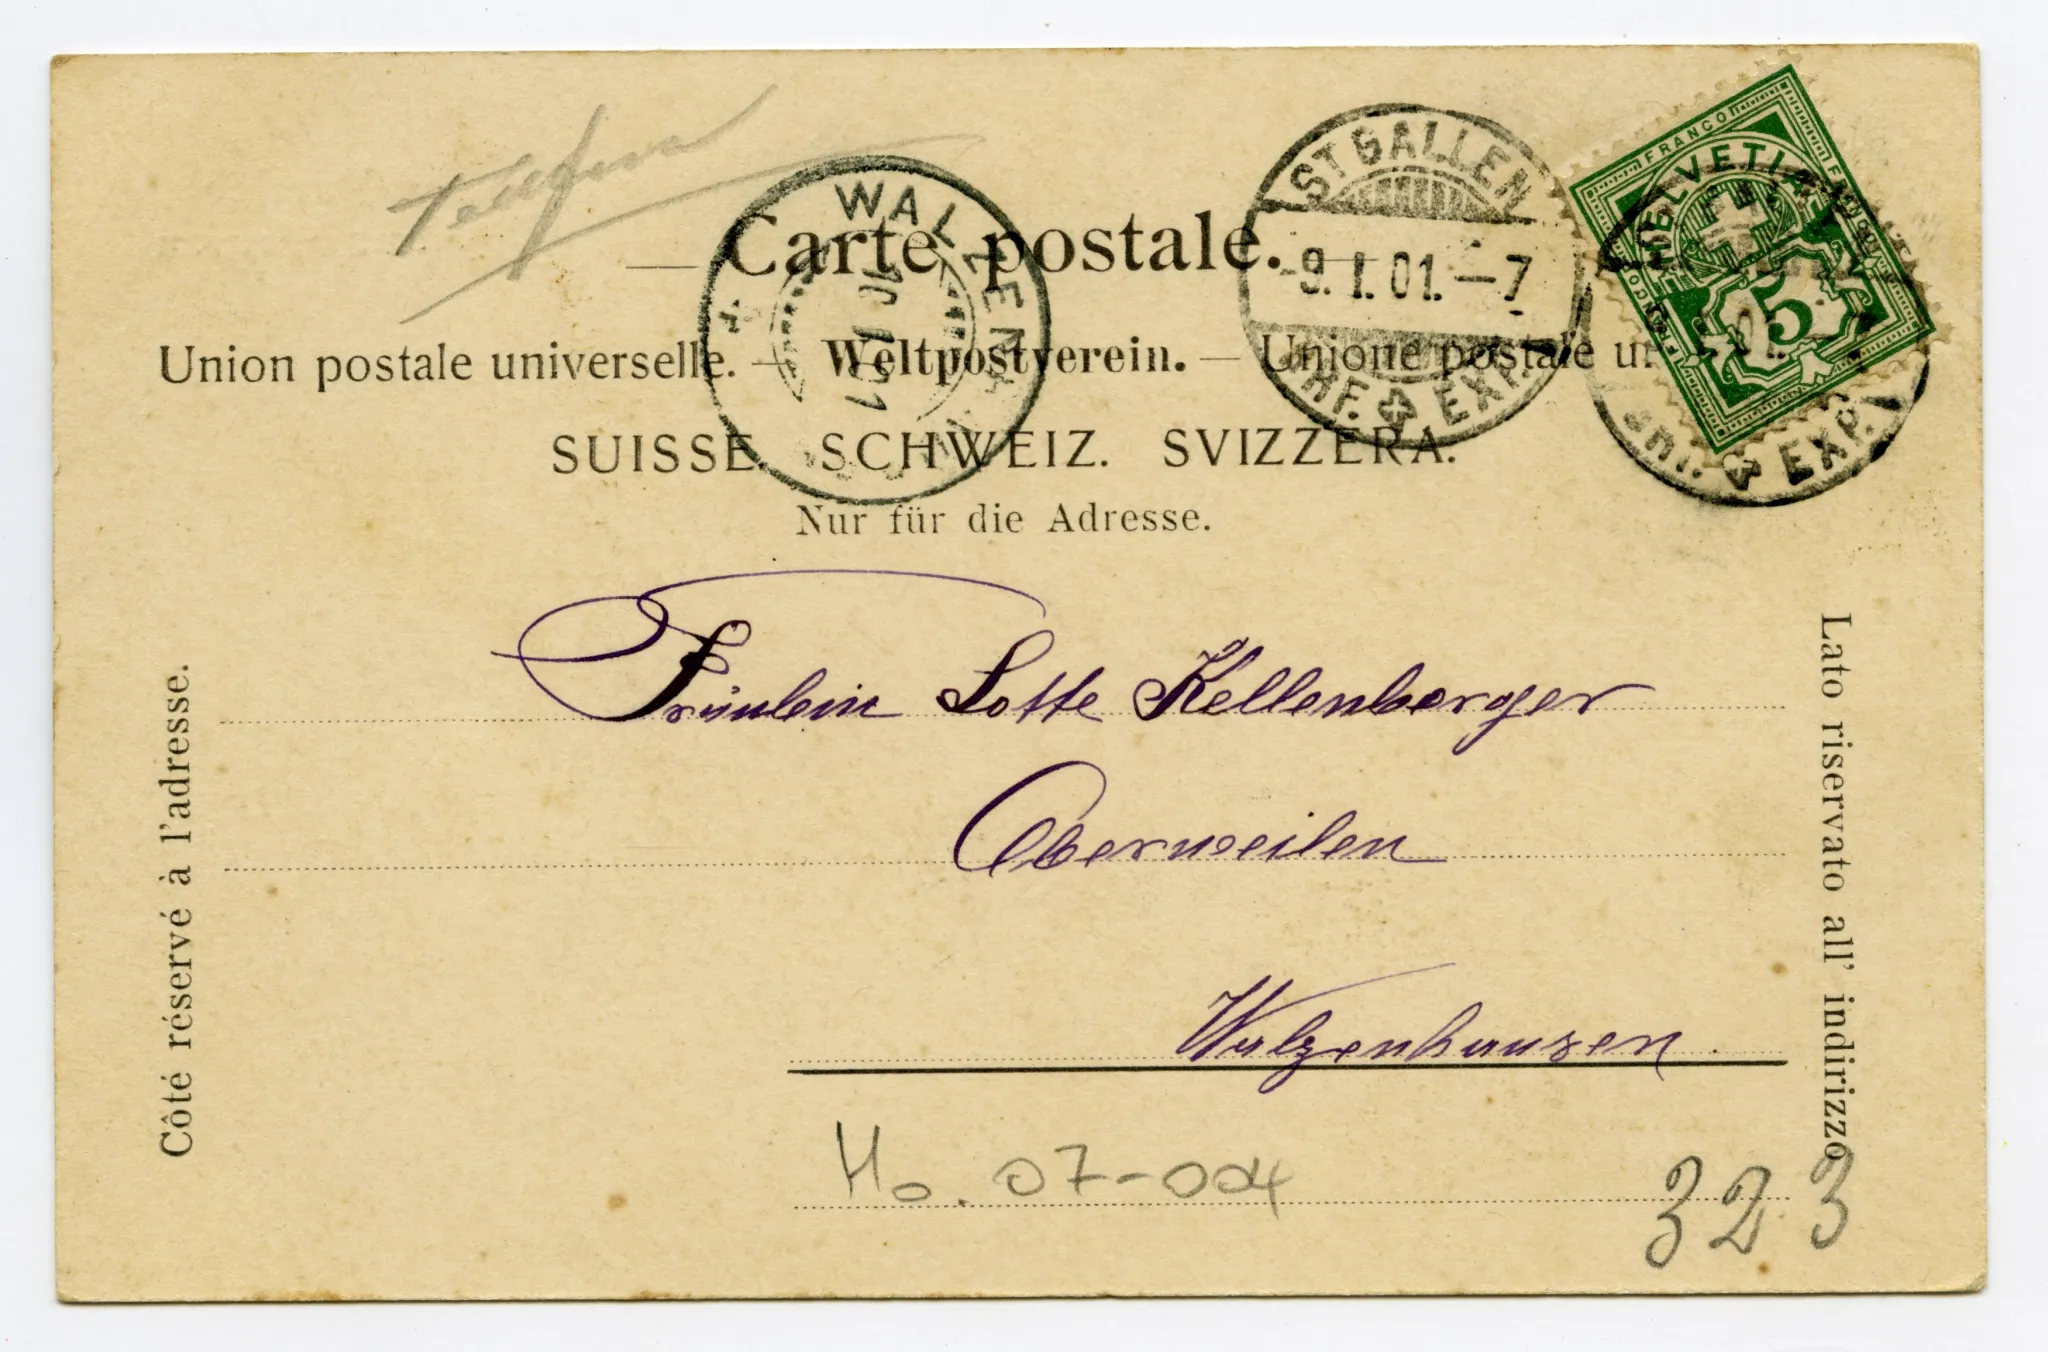 Carte postale.
Union postale universelle. — Weltpostverein. — Unione postale u
SUISSE. SCHWEIZ. SVIZZERA.
Nur für die Adresse.
WALZENHAUSEN
10 I 01
ST. GALLEN
-9. I. 01. – 7
BRF. EXP.
FRANCO
HELVETIA
5
EXP.
Fräulein Lotte Kellenberger
Oberweilen
Walzenhausen.
Côté réservé à l'adresse.
Lato riservato all' indirizzo
Ho. 07-004
323